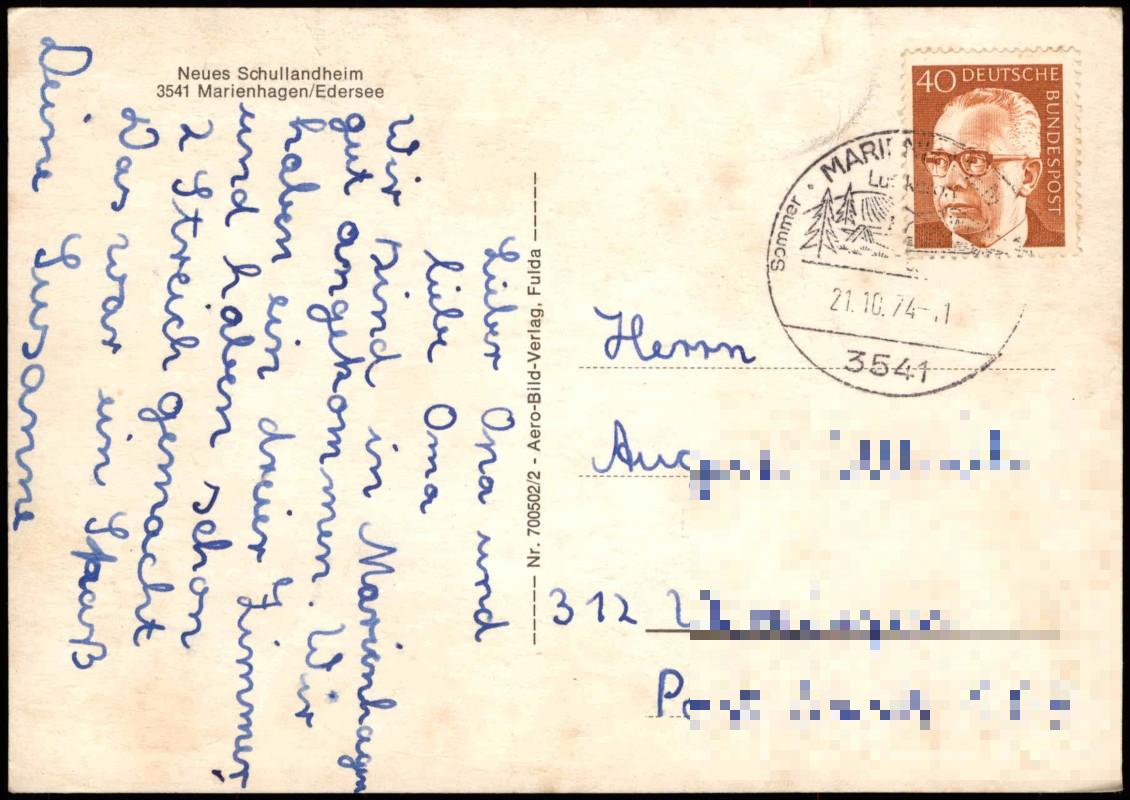 Neues Schullandheim
3541 Marienhagen/Edersee
Lieber Opa und
liebe Oma
Wir sind in Marienhagen
gut angekommen. Wir
haben ein dreier Zimmer
und haben schon
2 Streich gemacht
Das war ein Spaß
Deine Susanne
Nr. 700502/2 - Aero-Bild-Verlag, Fulda
40 DEUTSCHE
BUNDESPOST
Sommer
21.10.74
3541
Herrn
312